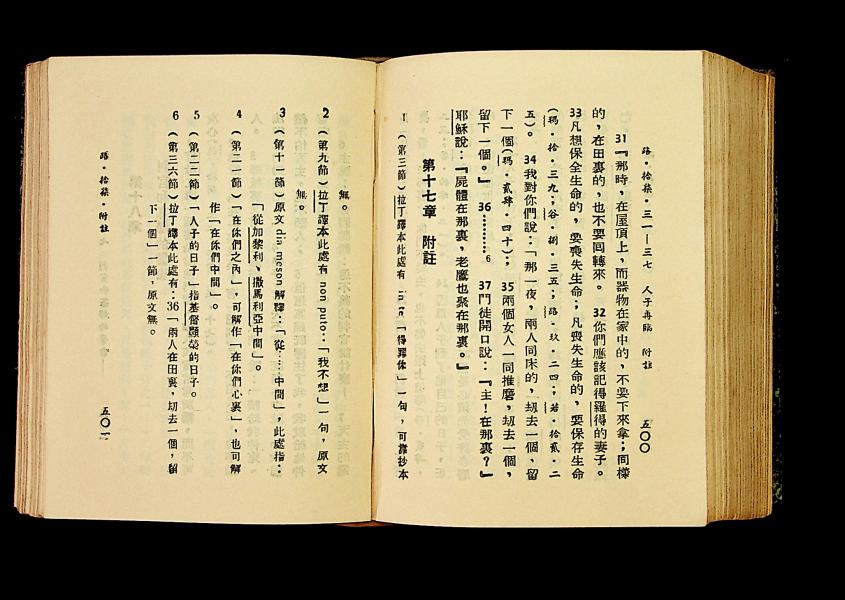 路·拾柒·三一—三七 人子再臨 附註 五〇〇
31『那時，在屋頂上，而器物在家中的，不要下來拿；同樣
的，在田裏的，也不要回轉來。 32你們應該記得羅得的妻子。
33凡想保全生命的，要喪失生命；凡喪失生命的，要保存生命
(瑪·拾·三九；谷·捌·三五；路·玖·二四；若·拾貳·二
五)。 34我對你們說：「那一夜，兩人同床的，刼去一個，留
下一個(瑪·貳肆·四十)； 35兩個女人一同推磨，刼去一個，
留下一個。」 36………6 37門徒開口說：『主！在那裏？』
耶穌說：『屍體在那裏，老鷹也聚在那裏。』
第十七章 附註
1 (第三節)拉丁譯本此處有 「得罪你」一句，可靠抄本
無。
2 (第九節)拉丁譯本此處有 non puto：「我不想」一句，原文
無。
3 (第十一節)原文 dia meson 解釋：「從……中間」，此處指：
「從加黎利、撒馬利亞中間」。
4 (第二一節)「在你們之內」，可解作「在你們心裏」，也可解
作「在你們中間」。
5 (第二二節)「人子的日子」指基督顯榮的日子。
6 (第三六節)拉丁譯本此處有：36「兩人在田裏，刼去一個，留
下一個」一節，原文無。
路·拾柒·附註 五〇一